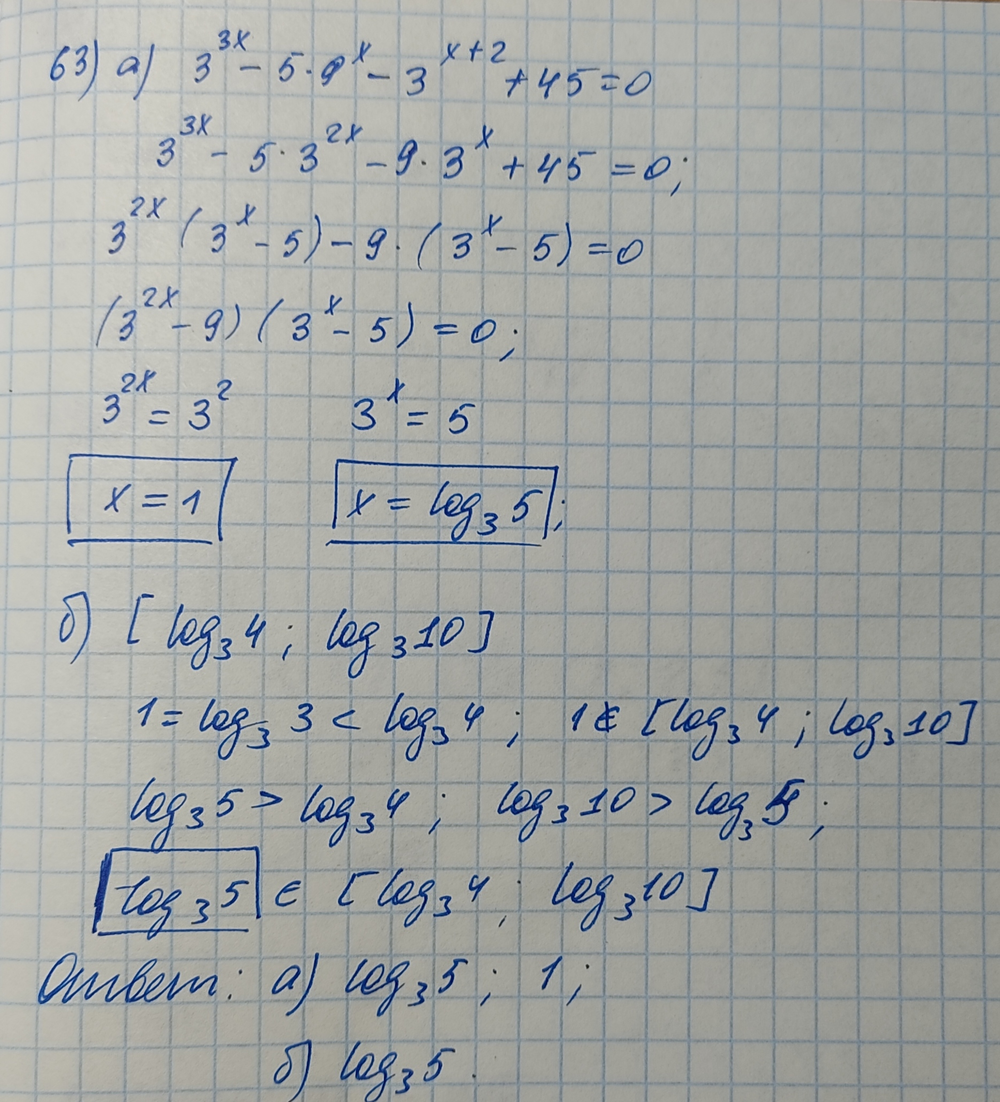 63) а) 3^{3x} - 5·9^x - 3^{x+2} + 45 = 0
3^{3x} - 5·3^{2x} - 9·3^x + 45 = 0;
3^{2x} (3^x - 5) - 9·(3^x - 5) = 0
(3^{2x} - 9) (3^x - 5) = 0;
3^{2x} = 3^2 3^x = 5
x = 1 x = log_3 5;
б) [log_3 4; log_3 10]
1 = log_3 3 < log_3 4; 1 ∉ [log_3 4; log_3 10]
log_3 5 > log_3 4; log_3 10 > log_3 5;
log_3 5 ∈ [log_3 4; log_3 10]
Ответ: а) log_3 5; 1;
б) log_3 5.